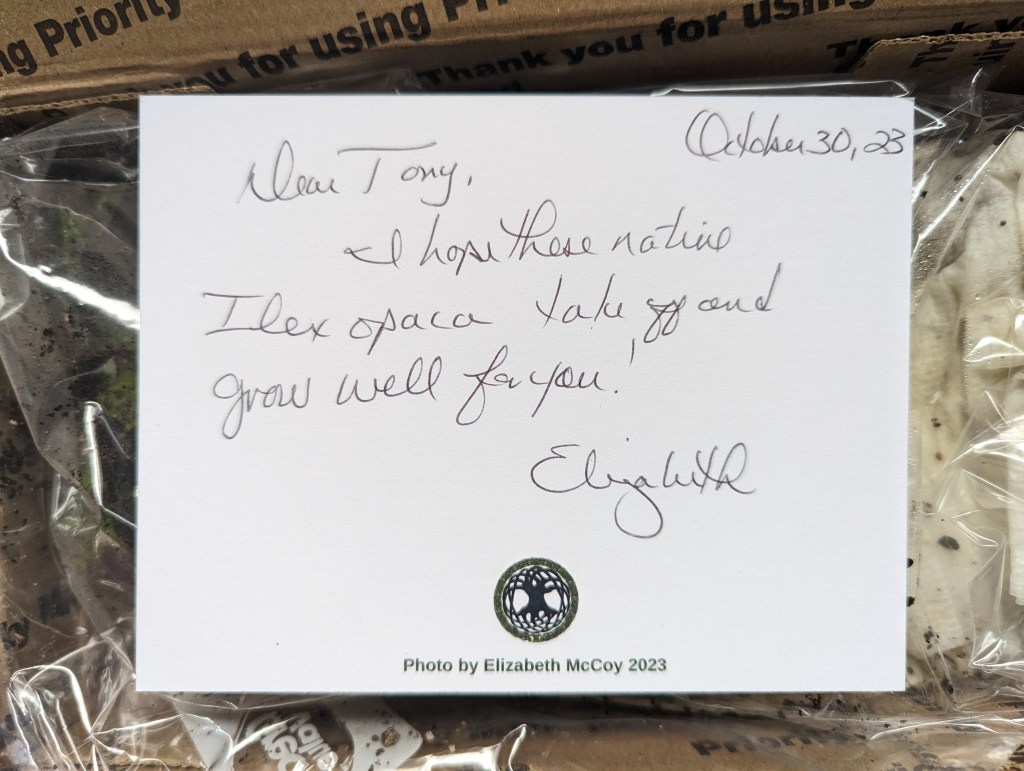 ng Priority
you for using Pri
Thank you for using
Th
October 30, 23
Dear Tony,
I hope these native
Ilex opaca take off and
grow well for you!
Elizabeth
Photo by Elizabeth McCoy 2023
Priori